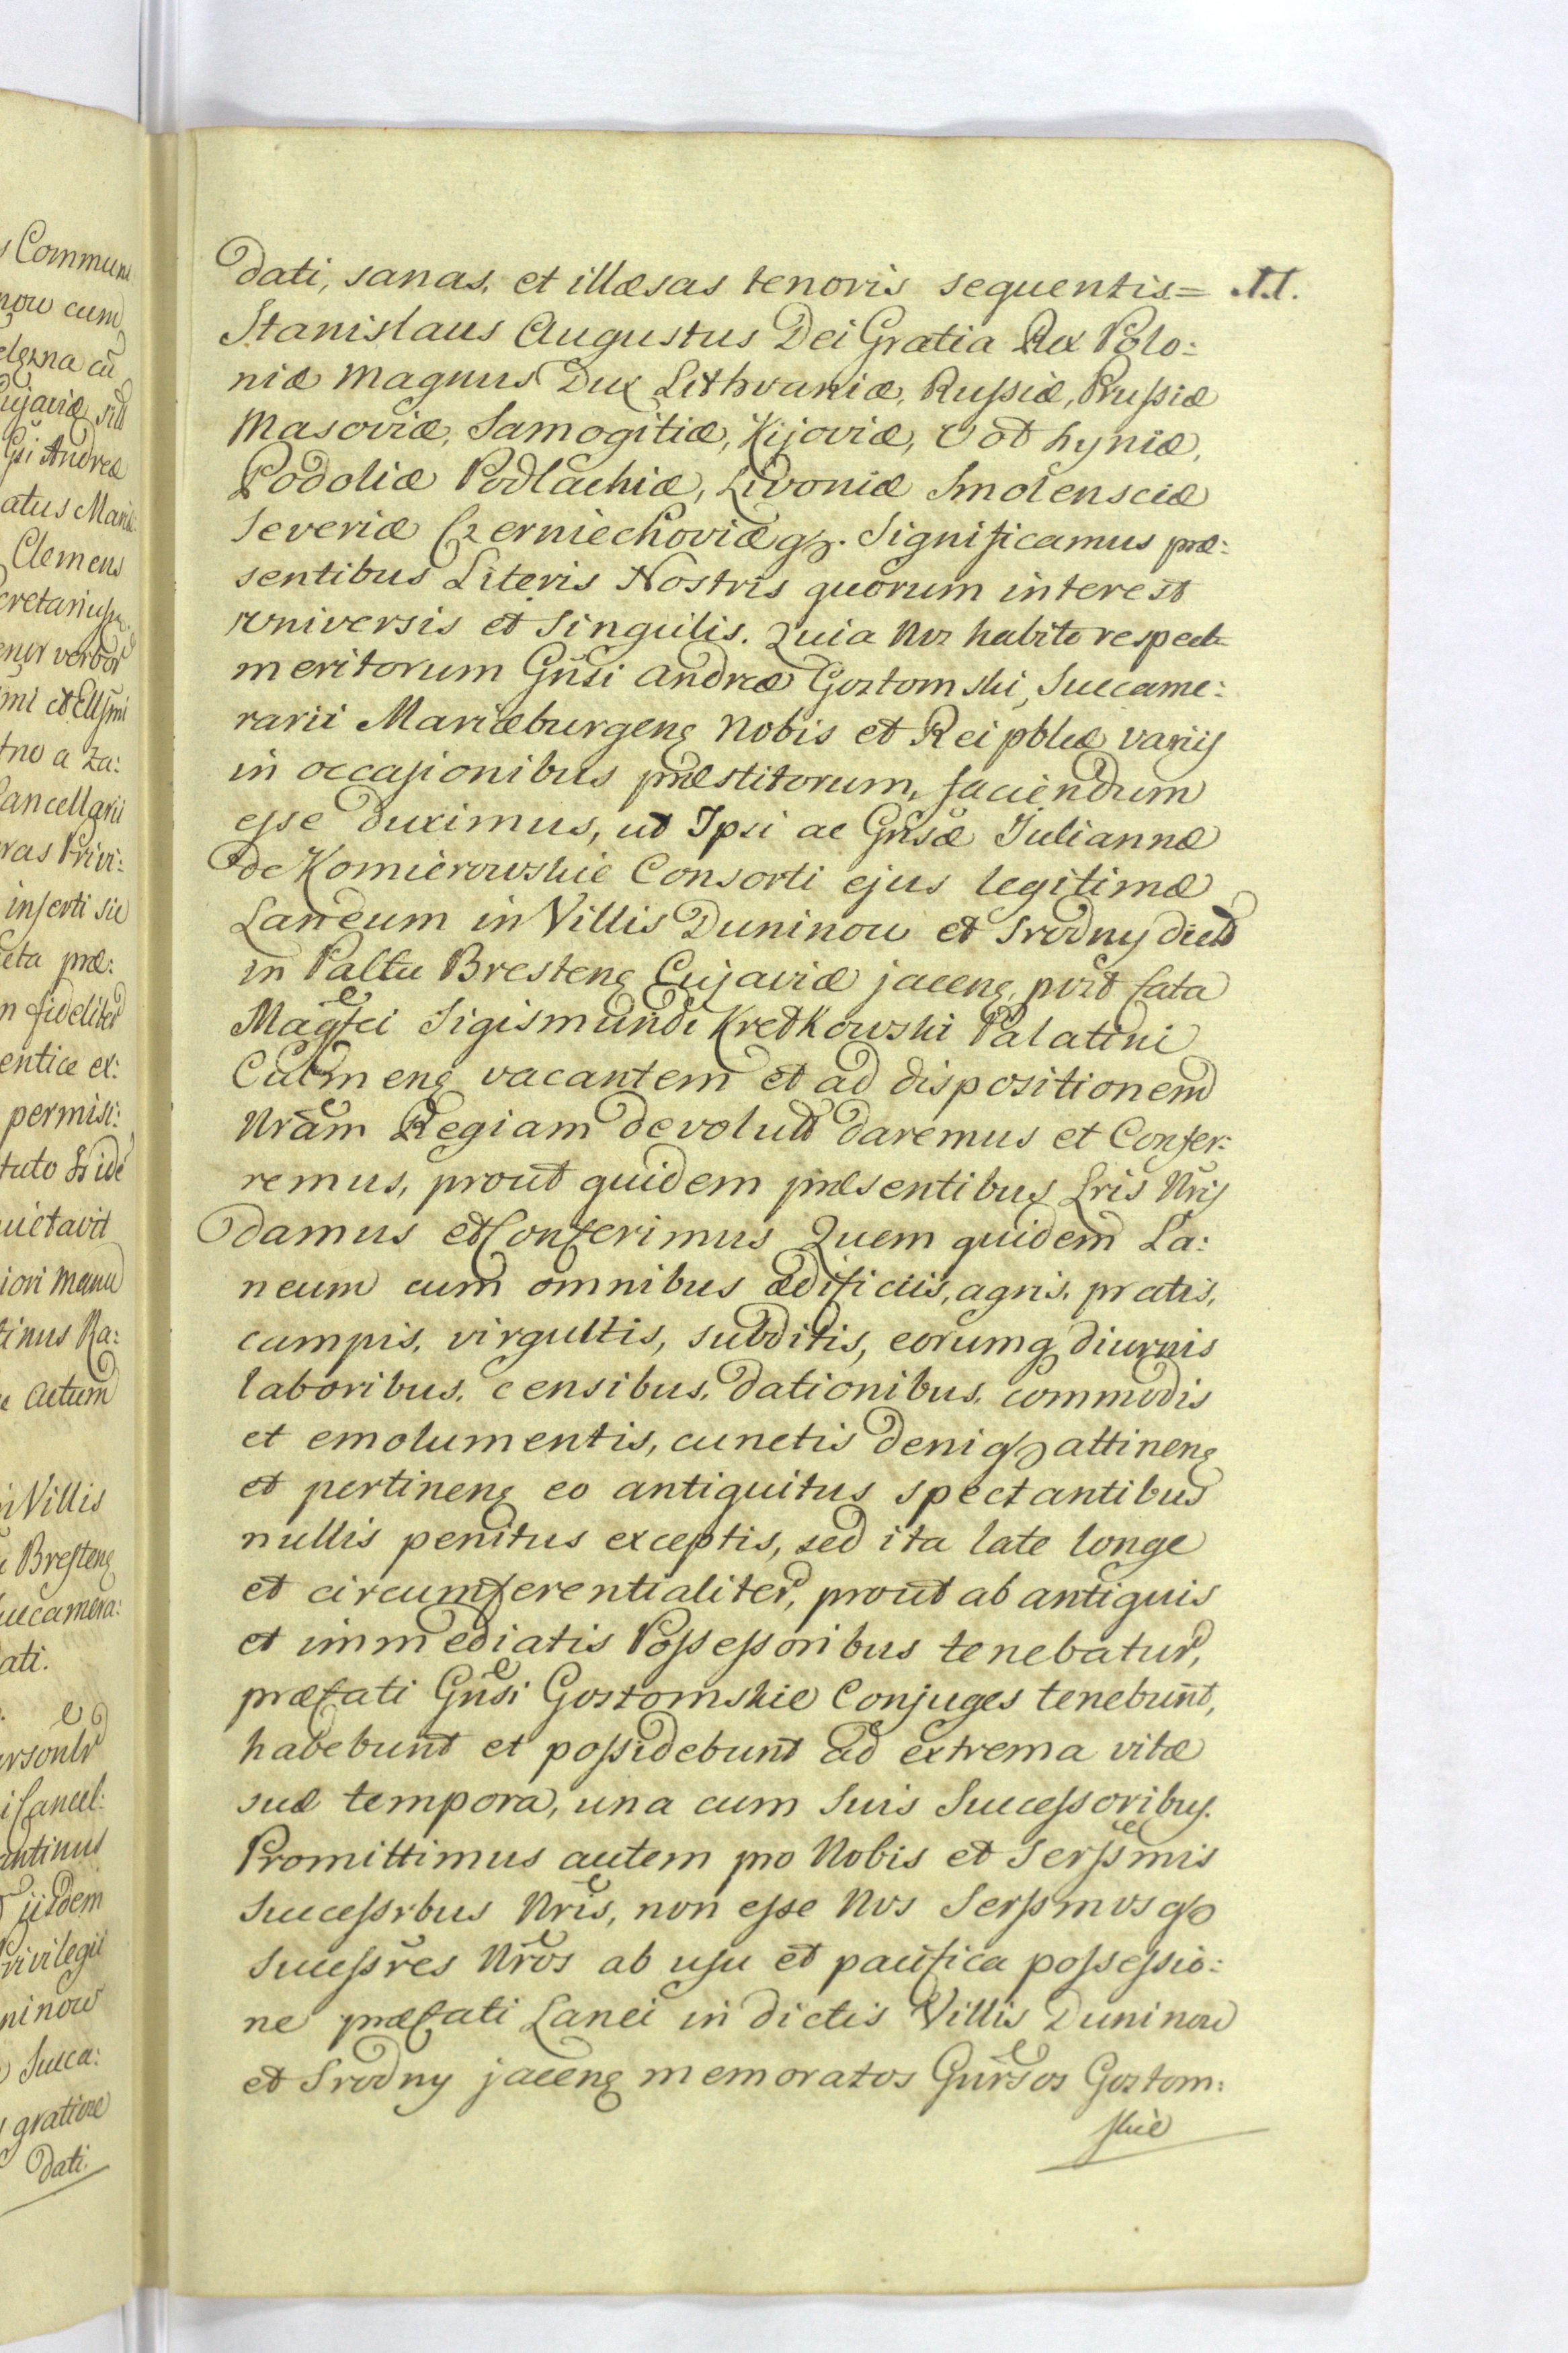 dati, sanas, et illæsas tenoris sequentis=
Stanislaus Augustus Dei Gratia Rex Polo:
niæ Magnus Dux Lithvaniæ, Russiæ, Prussiæ
Masoviæ, Samogitiæ, Kijoviæ, Volhyniæ,
Podoliæ Podlachiæ, Livoniæ Smolensciæ
Severiæ Czerniechoviæq3. Significamus præ:
sentibus Literis Nostris quorum interest
Universis et Singulis. Quia Nos habito respectu
meritorum Gnsi Andreæ Gostomski, Succame:
rarii Mariæburgens Nobis et Reipblcæ variis
in occasionibus præstitorum, faciendum
esse duximus, ut Ipsi ac Gnsæ Juliannæ
de Komierowskie Consorti ejus legitimæ
Laneum in Villis Duninow et Srodny dict
in Paltu Brestens Cujaviæ jacens, post fata
Magfci Sigismundi Kretkowski Palatini
Culmens vacantem et ad dispositionem
Nram Regiam devolut daremus et Confer:
remus, prout quidem præsentibus Lris Nris
damus et Conferimus Quem quidem La:
neum cum omnibus ædificiis, agris, pratis,
campis, virgultis, subditis, eorumq diurnis
laboribus, censibus, dationibus, commodis
et emolumentis, cunctis deniq3 attinens
et pertinens eo antiquitus spectantibus
nullis penitus exceptis, sed ita late longe
et circumferentialiter, prout ab antiquis
et immediatis Possessoribus tenebatur,
præfati Gnsi Gostomskie Conjuges tenebunt,
habebunt et possidebunt ad extrema vitæ
suæ tempora, una cum Suis Successoribus.
Promittimus autem pro Nobis et Serssmis
Successrbus Nris, non esse Nos Serssmosq3
Sucessres Nros ab usu et pacifica possessio:
ne præfati Lanei in dictis Villis Duninow
et Srodny jacens memoratos Gnrsos Gostom:
skie